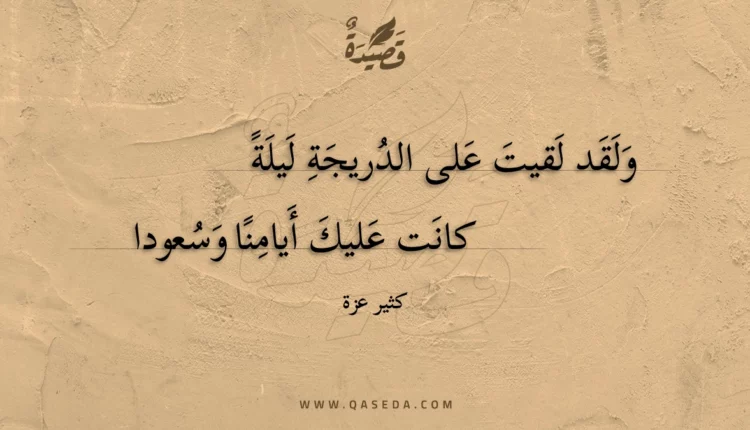 قَصِيْدَةٌ
وَلَقَد لَقيتَ عَلى الدُريجَةِ لَيلَةً
كانَت عَليكَ أَيامِنًا وَسُعودا
كثير عزة
WWW.QASEDA.COM